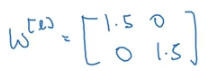 W^[l] = [1.5 0
0 1.5]